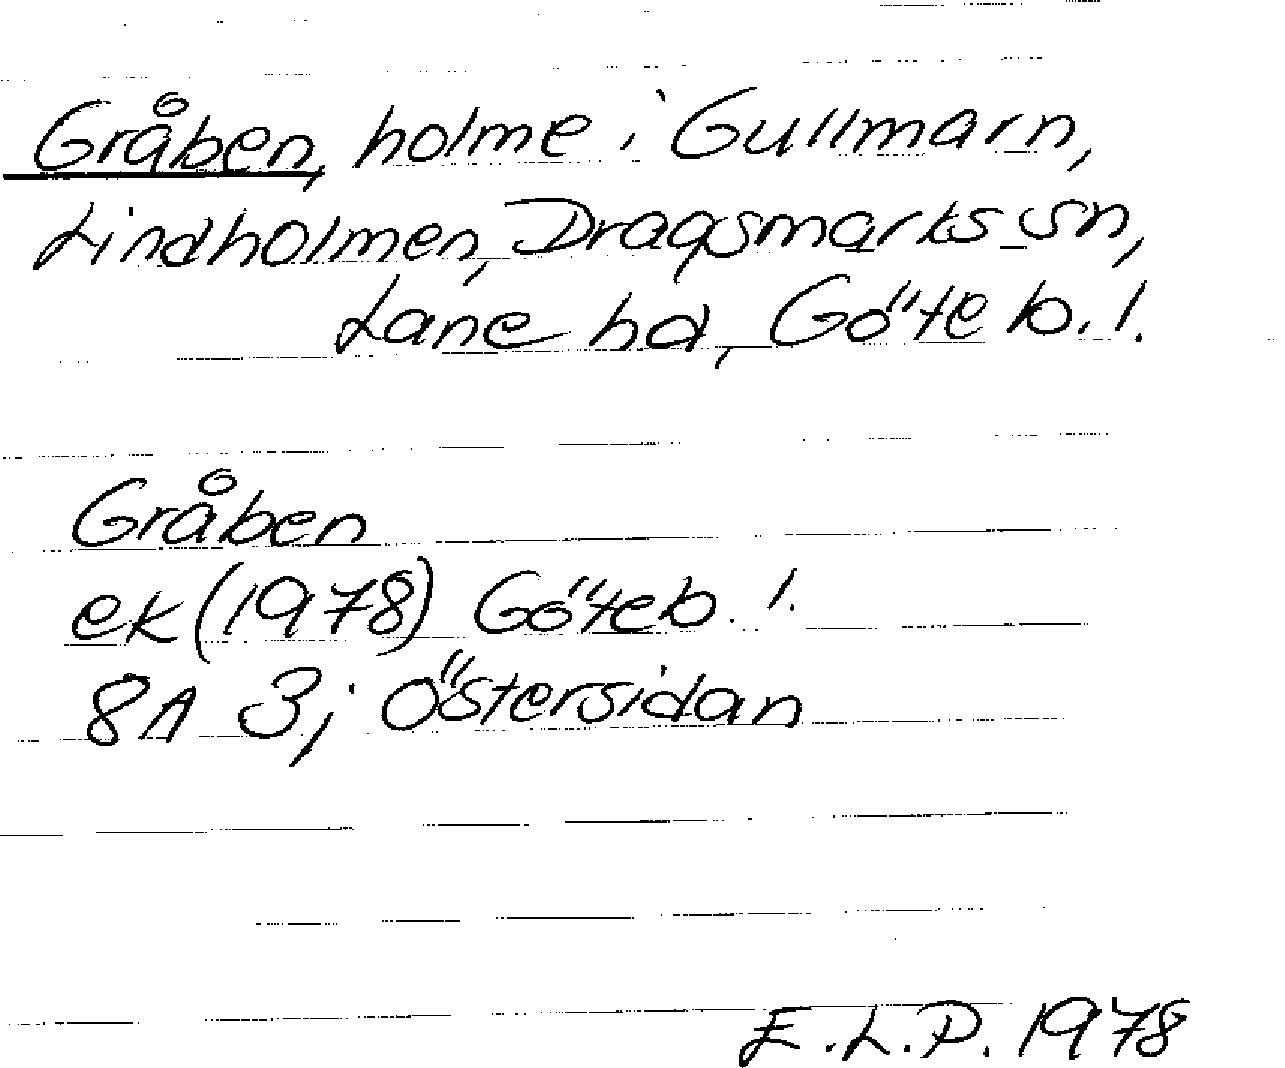 Gråben, holme i Gullmarn,
Lindholmen, Dragsmarks sn,
Lane hd, Göteb. l.
Gråben
ek (1978) Göteb. l.
8A 3; Östersidan
E.L.P. 1978